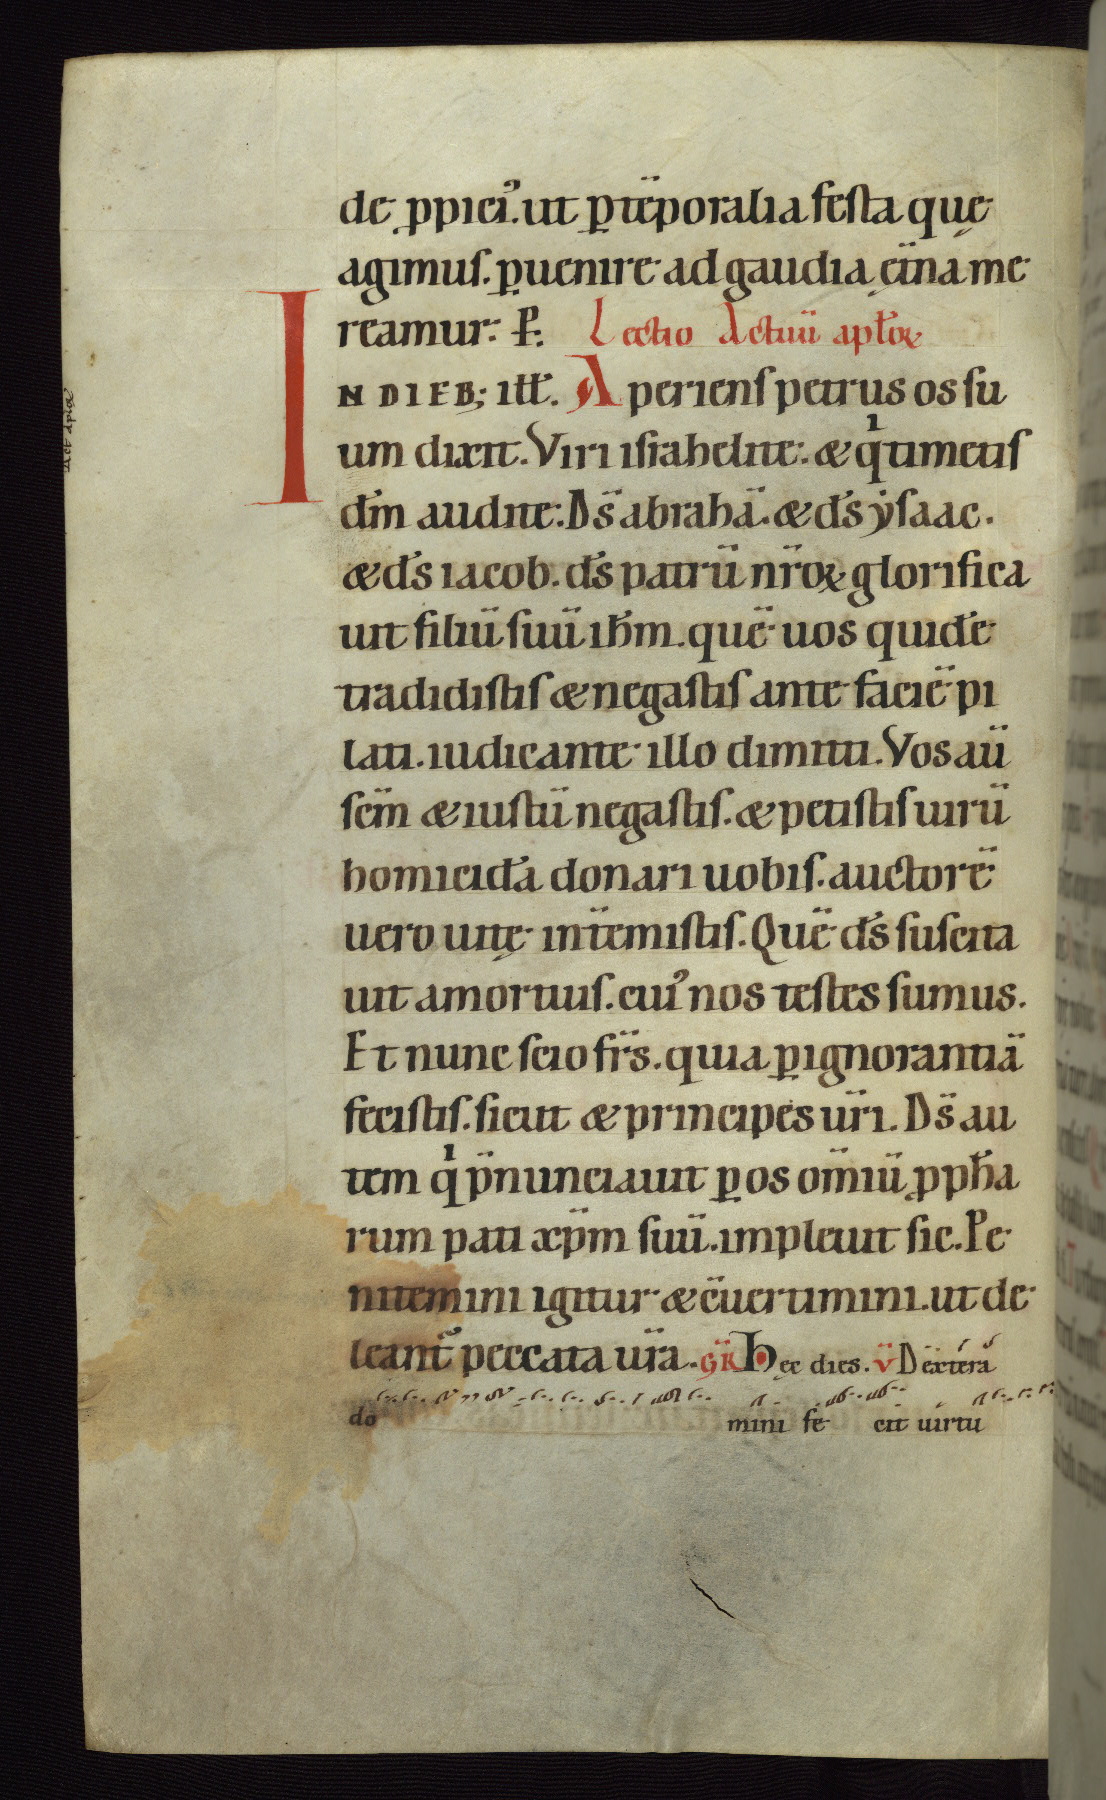 de ꝓpiciꝰ. ut ꝑ tēporalia feſta quę
agimuſ. ꝑuenire ad gaudia ęt̄na me
reamur. P̲.  Lectio Actuū apl̄oꝝ
IN DIEB; ill̄. Aperienſ petrus os ſu
um dixit. Viri iſrahelite. & qⁱ timetiſ
dm̄ audite. Ds̄ abrahā. & ds̄ ẏſaac.
& ds̄ iacob. ds̄ patrū nr̄oꝝ glorifica
uit filiū ſuū ihm̄. quē uos quidē
tradidiſtiſ & negaſtiſ ante faciē pi
lati. iudicante illo dimitti. Vos aū
ſcm̄ & iuſtū negaſtiſ. & petiſtiſ uirū
homicidā donari uobiſ. auctorē
uero uitę int̄emiſtiſ. Quē ds̄ ſuſcita
uit amortuiſ. cuiꝰ nos teſtes ſumus.
Et nunc ſcio fr̄s. quia ꝑ ignorantiā
feciſtiſ. ſicut & principes ur̄i. Ds̄ au
tem qⁱ p̄nunciauit ꝑ os om̄iū ꝓph̄a
rum pati xp̄m ſuū. impleuit ſic. Pe
nitemini igitur & c̄uertimini. ut de
leant᷑ peccata ur̄a. GR̄ Hec dies. V̄ Dexterā
do mini fe cit uirtu